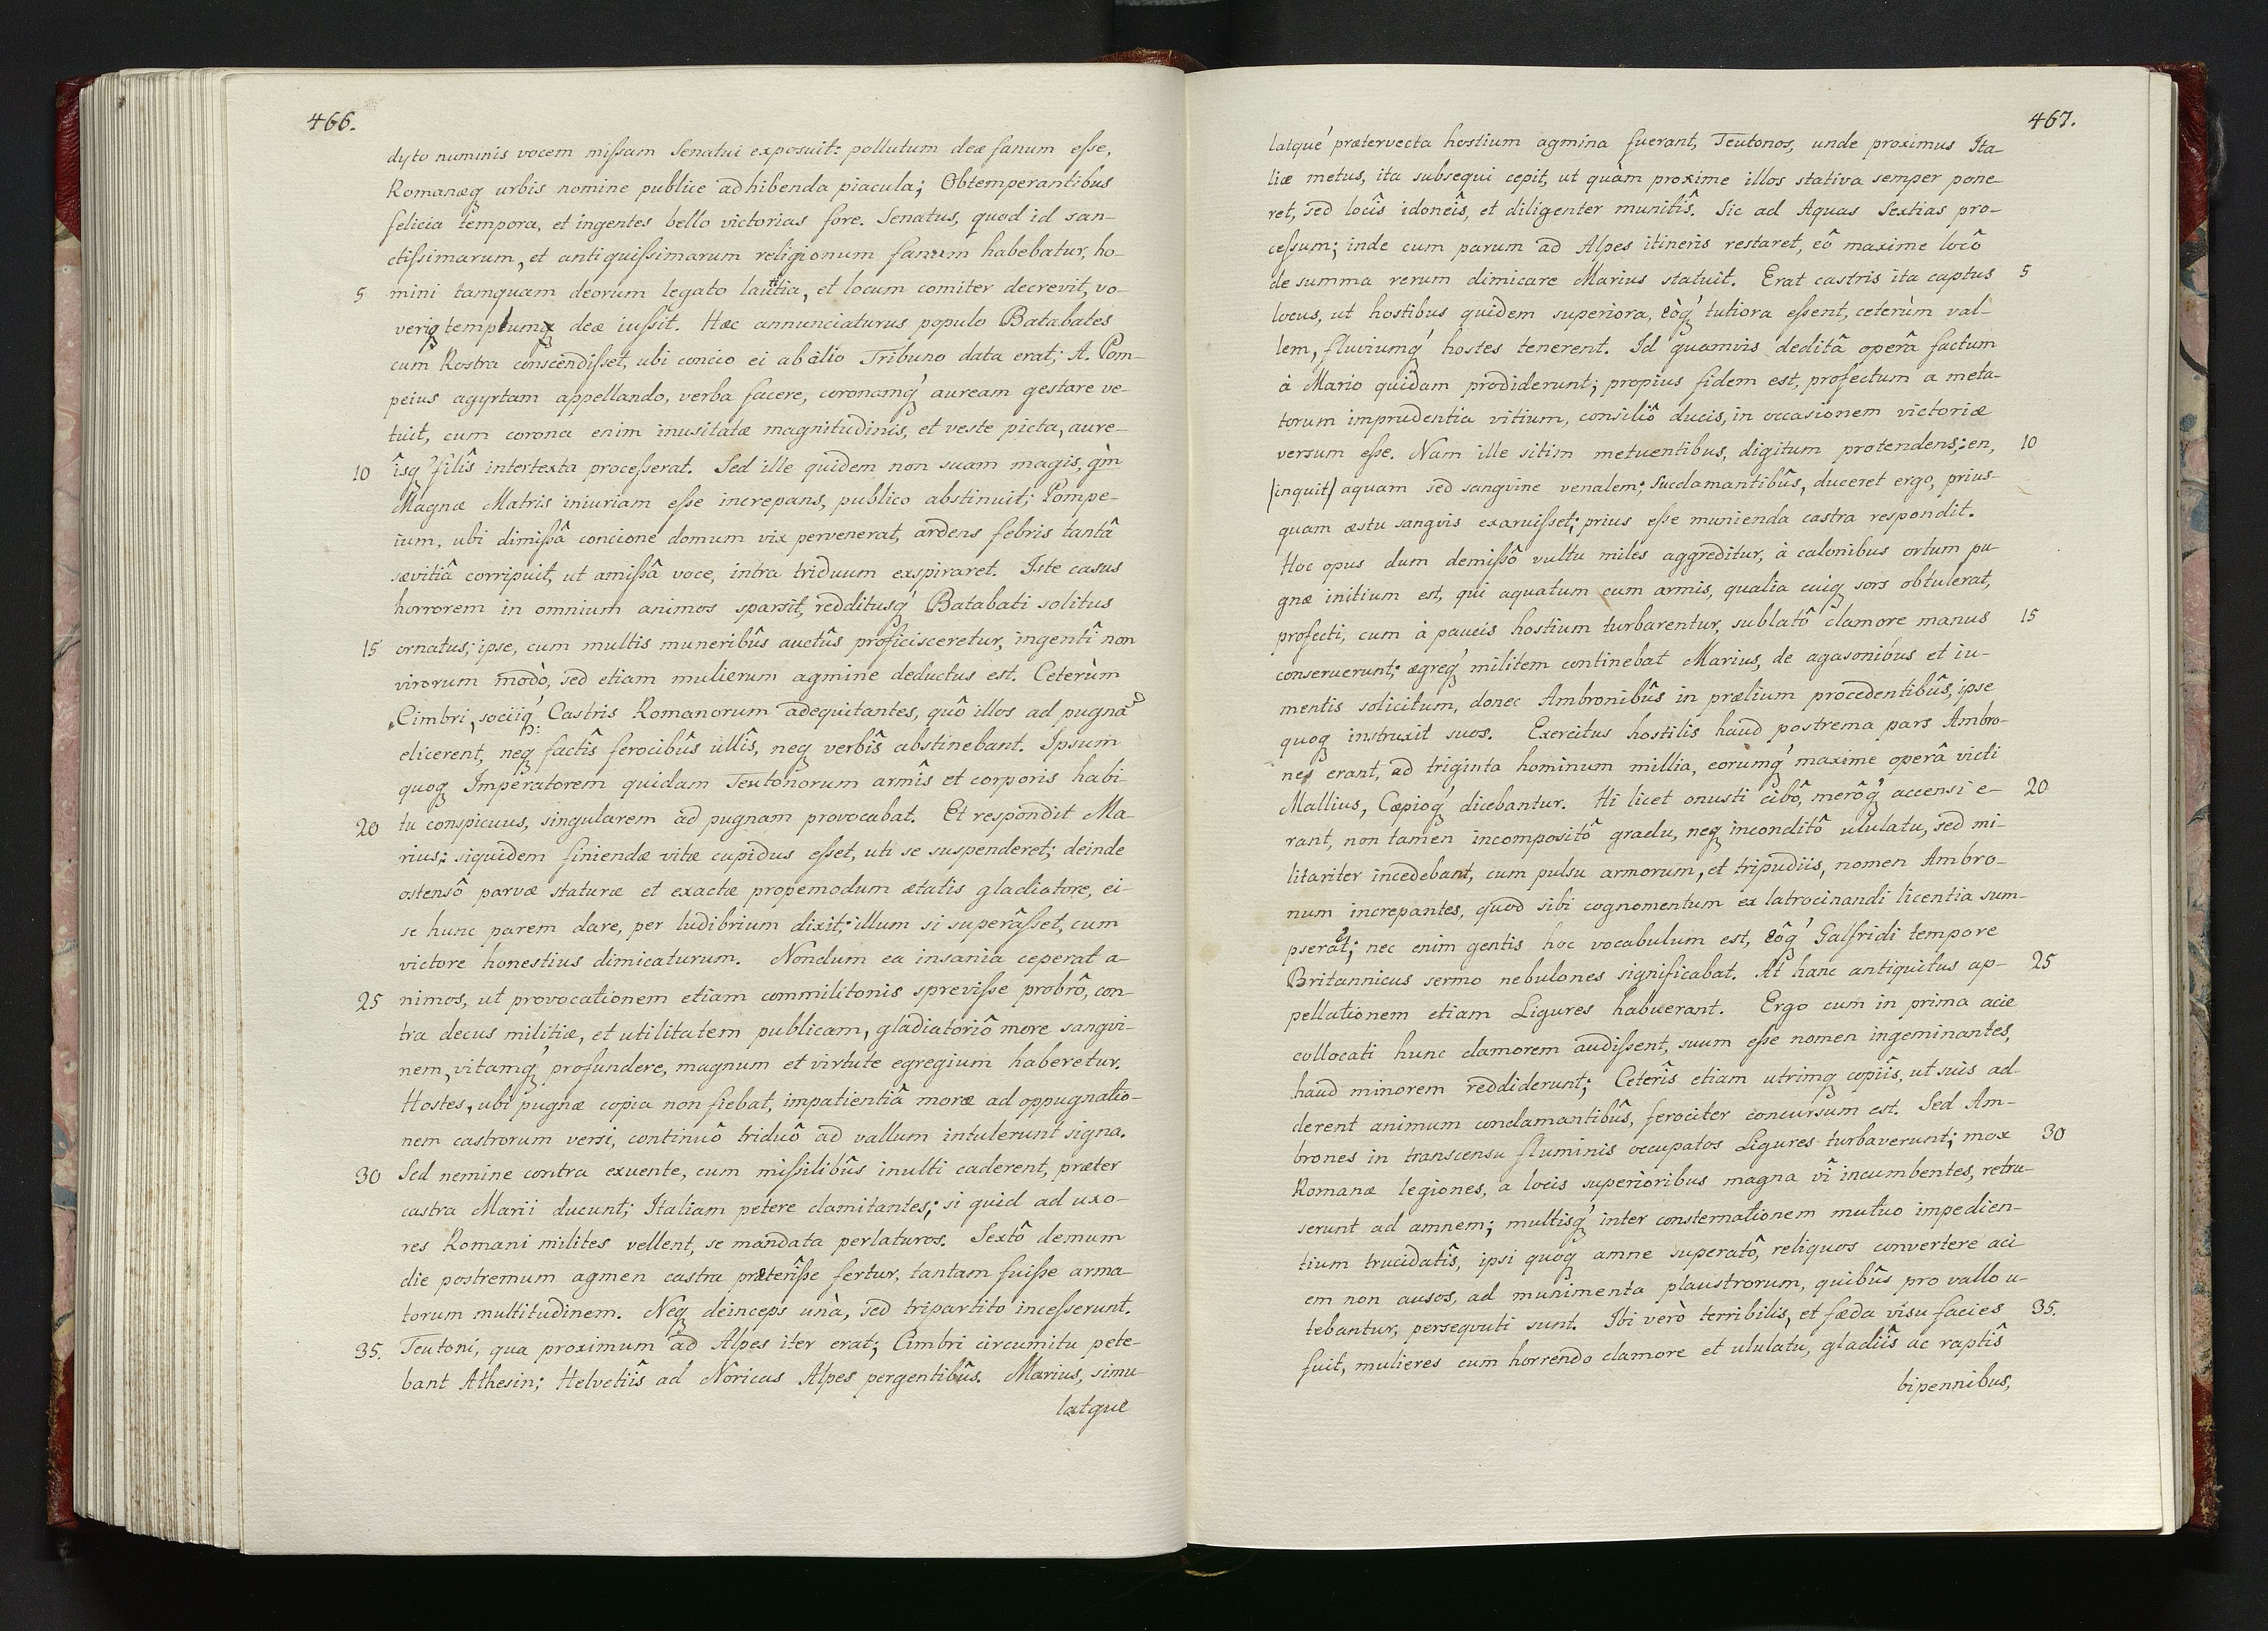 466.
dyto numinis vocem missam Senatui exposuit: pollutum deæ fanum esse,
Romanæq urbis nomine publice adhibenda piacula; Obtemperantibus
felicia tempora, et ingentes bello victorias fore. Senatus, quod id san-
ctissimarum, et antiquissimarum religionum fanum habebatur, ho-
5 mini tamquam deorum legato lautia, et locum comiter decrevit, vo-
veriq templumq deæ iussit. Hæc annunciaturus populo Batabates
cum Rostra conscendisset, ubi concio ei ab alio Tribuno data erat; A. Pom-
peius agyrtam appellando, verba facere, coronamq́ auream gestare ve-
tuit, cum corona enim inusitatæ magnitudinis, et veste picta, aure-
10 îsq́ filîs intertexta processerat. Sed ille quidem non suam magis, qm̀
Magnæ Matris iniuriam esse increpans, publico abstinuit; Pompe-
ium, ubi dimissâ concione domum vix pervenerat, ardens febris tantâ
sævitiâ corripuit, ut amissâ voce, intra triduum exspiraret. Iste casus
horrorem in omnium animos sparsit, redditusq́ Batabati solitus
15 ornatus; ipse, cum multis muneribûs auctûs proficisceretur, ingentî non
virorum modò, sed etiam mulierum agmine deductus est. Ceterùm
Cimbri, sociiq́ Castris Romanorum adequitantes, quô illos ad pugnā
elicerent, neq factîs ferocibûs ullîs, neq verbîs abstinebant. Ipsum
quoq Imperatorem quidam Teutonorum armîs et corporis habi
20 tu conspicuus, singularem ad pugnam provocabat. Et respondit Ma-
rius: siquidem finiendæ vitæ cupidus esset, uti se suspenderet; deinde
ostensô parvæ staturæ et exactæ propemodum ætatis gladiatore, ei-
se hunc parem dare, per ludibrium dixit; illum si superâsset, cum
victore honestius dimicaturum. Nondum ea insania ceperat a-
25 nimos, ut provocationem etiam commilitonis sprevisse probrô, con-
tra decus militiæ, et utilitatem publicam, gladiatoriô more sangvi-
nem, vitamq́ profundere, magnum et virtute egregium haberetur.
Hostes, ubi pugnæ copia non fiebat, impatientiâ moræ ad oppugnatio-
nem castrorum versi, continuô triduô ad vallum intulerunt signa.
30 Sed nemine contra exeunte, cum missilibûs inulti caderent, præter
castra Marii ducunt; Italiam petere clamitantes; si quid ad uxo-
res Romani milites vellent, se mandata perlaturos. Sextô demum
die postremum agmen castra præterîsse fertur, tantam fuisse arma
torum multitudinem. Neq deinceps unà, sed tripartito incesserunt.
35. Teutoni, qua proximum ad Alpes iter erat; Cimbri circumitu pete-
bant Athesin; Helvetiîs ad Noricas Alpes pergentibûs. Marius, simu
latque
467.
latqué prætervecta hostium agmina fuerant, Teutonos, unde proximus Ita-
liæ metus, ita subsequi cepit, ut quàm proxime illos stativa semper pone-
ret, sed locîs idoneîs, et diligenter munitîs. Sic ad Aquas Sextias pro-
cessum; inde cum parum ad Alpes itineris restaret, eô maxime locô
de summa rerum dimicare Marius statuit. Erat castris ita captus 5
locus, ut hostibus quidem superiora, eòq́ tutiora essent, ceterùm val-
lem, fluviumq́ hostes tenerent. Id quamvis deditâ operâ factum
à Mario quidam prodiderunt; propius fidem est, profectum a meta-
torum imprudentia vitium, consiliô ducis, in occasionem victoriæ
versum esse. Nam ille sitim metuentibus, digitum protendens; en, 10
(inquit) aquam sed sangvine venalem; succlamantibûs, duceret ergo, prius-
quam æstu sangvis exaruisset; prius esse munienda castra respondit.
Hoc opus dum demissô vultu miles aggreditur, à calonibus ortum pu-
gnæ initium est, qui aquatum cum armis, qualia cuiq sors obtulerat,
profecti, cum à paucis hostium turbarentur, sublatô clamore manus 15
conseruerunt; ægreq́ militem continebat Marius, de agasonibus et iu-
mentis solicitum, donec Ambronibûs in prælium procedentibûs, ipse
quoq instruxit suos. Exercitus hostilis haud postrema pars Ambro-
nes erant, ad triginta hominum millia, eorumq́ maxime operâ victi
Mallius, Cæpioq́ dicebantur. Hi licet onusti cibô, merôq́ accensi e- 20
rant, non tamen incompositô gradu, neq inconditô ululatu, sed mi-
litariter incedebant, cum pulsu armorum, et tripudiis, nomen Ambro-
num increpantes, quod sibi cognomentum ex latrocinandi licentia sum-
pserāt; nec enim gentis hoc vocabulum est, eôq́ Galfridi tempore
Britannicus sermo nebulones significabat. At hanc antiquitus ap- 25
pellationem etiam Ligures habuerant. Ergo cum in prima acie
collocati hunc clamorem audissent, suum esse nomen ingeminantes,
haud minorem reddiderunt; Ceterîs etiam utrimq copiîs, ut suis ad-
derent animum conclamantibûs, ferociter concursum est. Sed Am-
brones in transcensu fluminis occupatos Ligures turbaverunt; mox 30
Romanæ legiones, a locis superioribus magna vî incumbentes, retru-
serunt ad amnem; multisq́ inter consternationem mutuo impedien-
tium trucidatîs, ipsi quoq amne superatô, reliquos convertere aci
em non ausos, ad munimenta plaustrorum, quibûs pro vallo u-
tebantur, perseqvuti sunt. Ibi verò terribilis, et fæda visu facies 35.
fuit, mulieres cum horrendo clamore et ululatu, gladiîs ac raptîs
bipennibus,